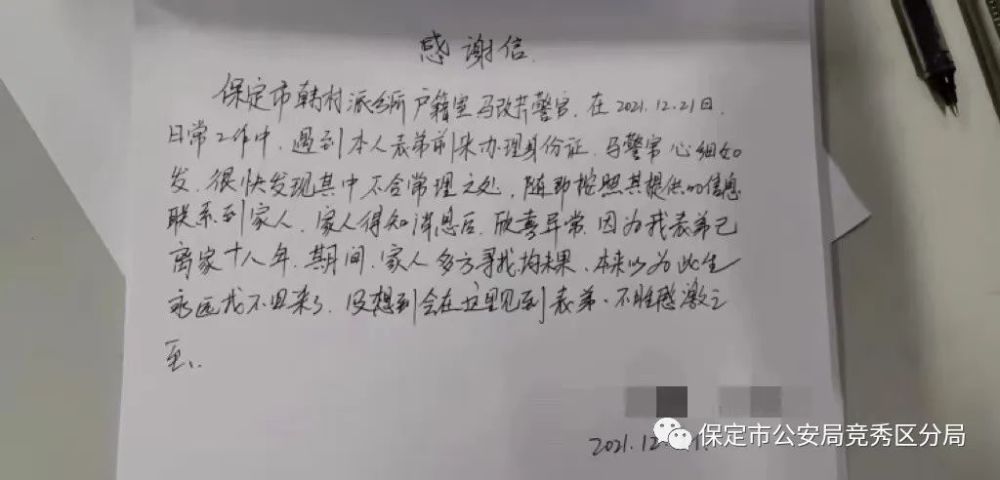 感谢信.
保定市韩村派出所户籍室马改芹警官.在2021.12.21日.
日常工作中.遇到本人表弟前来办理身份证.马警官心细如
发.很快发现其中不合常理之处.随即按照其提供的信息
联系到家人.家人得知消息后.欣喜异常.因为我表弟已
离家十八年.期间.家人多方寻找.均未果.本来以为此生
永远找不回来了.没想到会在这里见到表弟.不胜感激之
至..
2021.12.
保定市公安局竞秀区分局